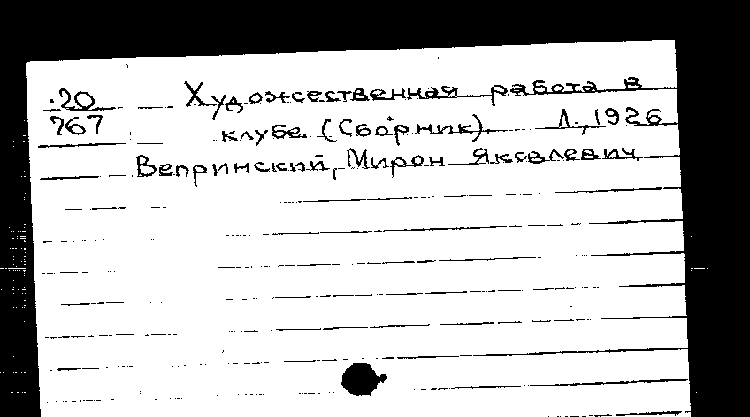 20
767
Художественная работа в
клубе. (Сборник). Л., 1926
Вепринский, Мирон Яковлевич